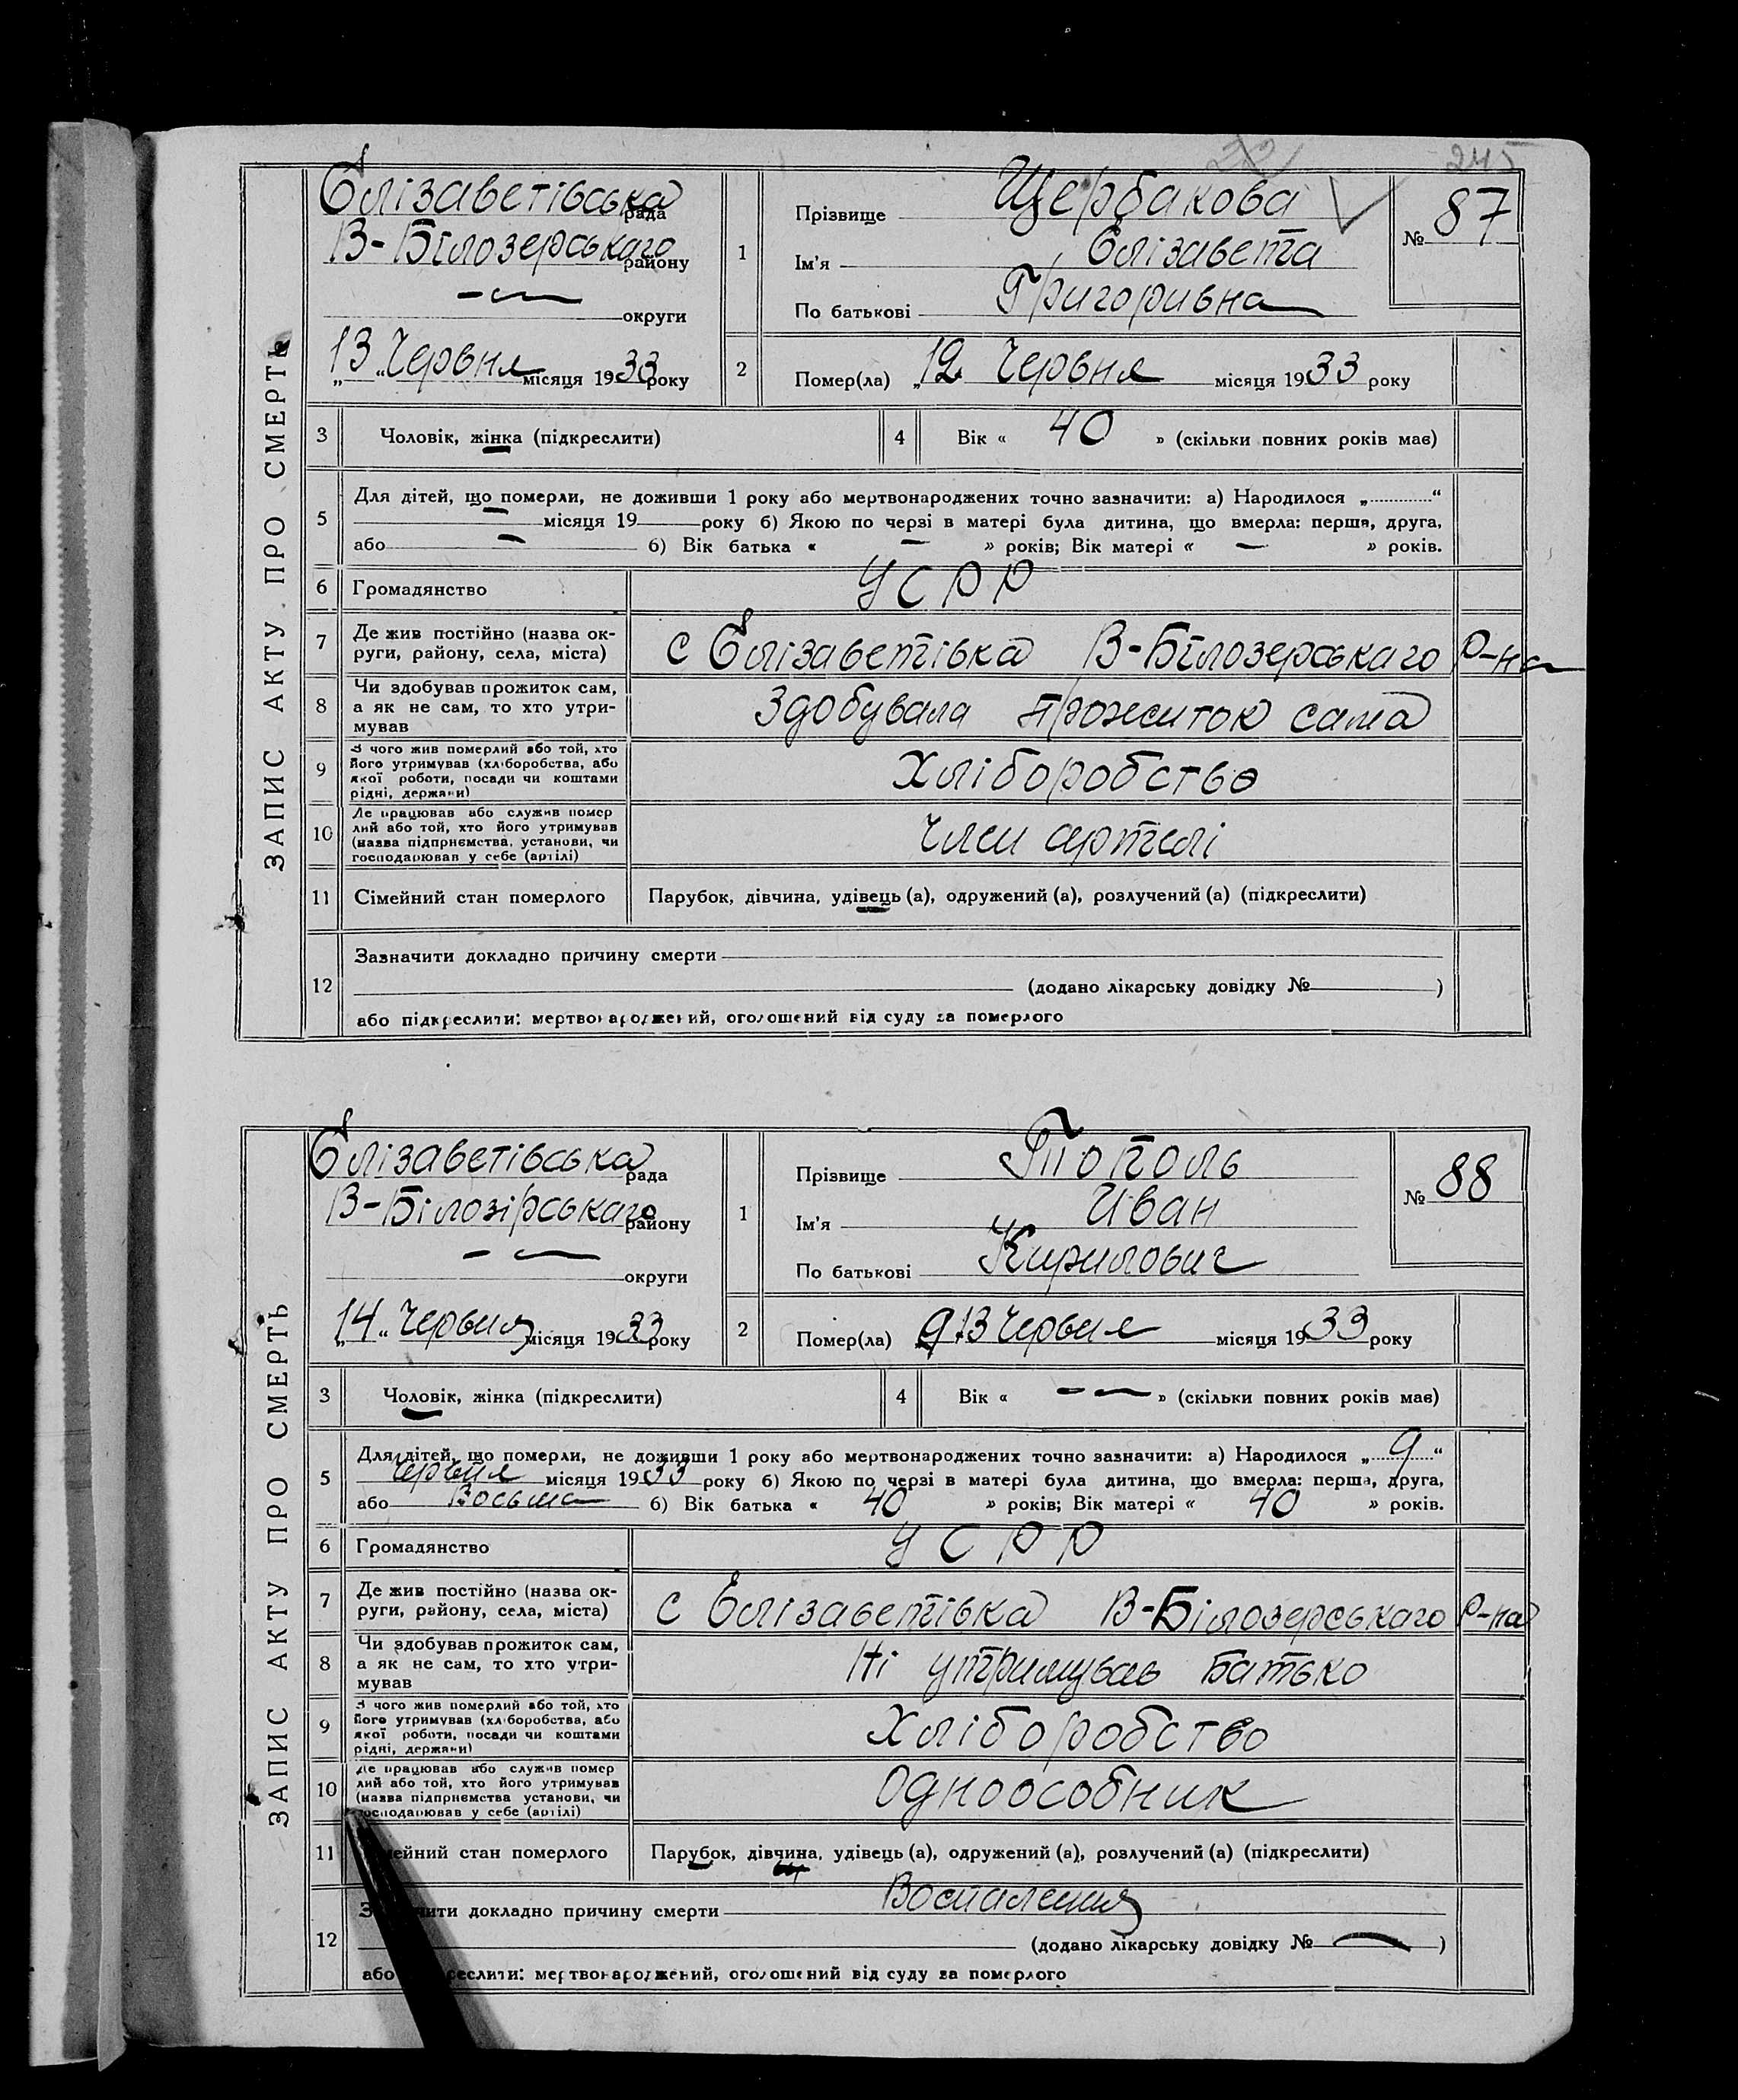 22
245
ЗАПИС АКТУ ПРО СМЕРТЬ
Єлізаветівська рада
В-Білозерськаго району
округи
„13“ Червня місяця 1933 року
1
Прізвище Щербакова
Ім'я Єлізавета
По батькові Григоривна
№ 87
2
Помер(ла) „12 Червня місяця 1933 року
3 Чоловік, жінка (підкреслити)
4 Вік « 40 » (скільки повних років має)
5 Для дітей, що померли, не доживши 1 року або мертвонароджених точно зазначити: а) Народилося „ “
місяця 19 року б) Якою по черзі в матері була дитина, що вмерла: перша, друга,
або — б) Вік батька « — » років; Вік матері « — » років.
6 Громадянство УСРР
7 Де жив постійно (назва ок-
руги, району, села, міста)
с Єлізаветівка В-Білозерськаго Р-на
8 Чи здобував прожиток сам,
а як не сам, то хто утри-
мував
Здобувала прожиток сама
9 З чого жив померлий або той, хто
його утримував (хліборобства, або
якої роботи, посади чи коштами
рідні, держави)
Хліборобство
10 Де працював або служив помер
лий або той, хто його утримував
(назва підприємства, установи, чи
господарював у себе (артілі)
Член артелі
11 Сімейний стан померлого Парубок, дівчина, удівець (а), одружений (а), розлучений (а) (підкреслити)
12 Зазначити докладно причину смерти
(додано лікарську довідку № )
або підкреслити: мертвонароджений, оголошений від суду за померлого
ЗАПИС АКТУ ПРО СМЕРТЬ
Єлізаветівська рада
В-Білозірськаго району
округи
„14“ Червня місяця 1933 року
1
Прізвище Тополь
Ім'я Иван
По батькові Кирилович
№ 88
2
Помер(ла) 13 Червня місяця 1933 року
3 Чоловік, жінка (підкреслити)
4 Вік « — » (скільки повних років має)
5 Для дітей, що померли, не доживши 1 року або мертвонароджених точно зазначити: а) Народилося „9“
Червня місяця 1933 року б) Якою по черзі в матері була дитина, що вмерла: перша, друга,
або Восьма б) Вік батька « 40 » років; Вік матері « 40 » років.
6 Громадянство УСРР
7 Де жив постійно (назва ок-
руги, району, села, міста)
с Єлізаветівка В-Білозерськаго Р-на
8 Чи здобував прожиток сам,
а як не сам, то хто утри-
мував
Ні утримував батько
9 З чого жив померлий або той, хто
його утримував (хліборобства, або
якої роботи, посади чи коштами
рідні, держави)
Хліборобство
10 Де працював або служив помер
лий або той, хто його утримував
(назва підприємства установи, чи
господарював у себе (артілі)
Одноособник
11 мейний стан померлого Парубок, дівчина, удівець (а), одружений (а), розлучений (а) (підкреслити)
12 ити докладно причину смерти Воспаления
(додано лікарську довідку № — )
або реслити: мертвонароджений, оголошений від суду за померлого